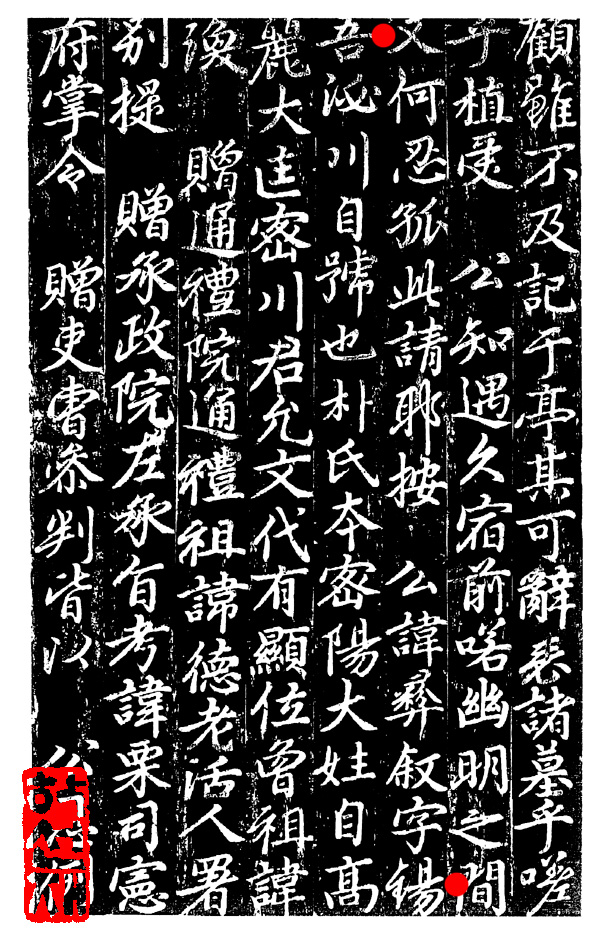 顧雖不及記于亭其可辭於諸墓乎嗟
乎植受 公知遇久宿前喏幽明之間
又何忍孤此請耶按 公諱彛叙字錫
吾泌川自號也朴氏夲密陽大姓自高
麗大匡密川君允文代有顯位曾祖諱
渙 贈通禮院通禮祖諱德老活人署
别提 贈承政院左承旨考諱栗司憲
府掌令 贈吏曹叅判皆以 公